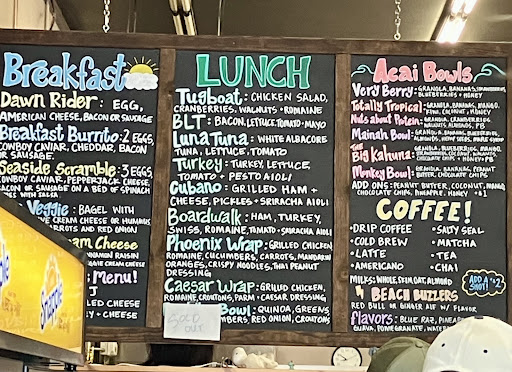 Breakfast
Dawn Rider: EGG,
AMERICAN CHEESE, BACON OR SAUSAGE
Breakfast Burrito: 2 EGGS,
COWBOY CAVIAR, CHEDDAR, BACON
OR SAUSAGE.
Seaside Scramble: 3 EGGS,
COWBOY CAVIAR, PEPPERJACK CHEESE,
BACON OR SAUSAGE ON A BED OF SPINACH
Veggie: BAGEL WITH
CREAM CHEESE OR HUMMUS,
CARROTS AND RED ONION
Cheese
RAISIN
CREAM CHEESE
Menu!
J
CHEESE
+ CHEESE
LUNCH
Tugboat: CHICKEN SALAD,
CRANBERRIES, WALNUTS + ROMAINE
BLT: BACON, LETTUCE, TOMATO + MAYO
Luna Tuna: WHITE ALBACORE
TUNA, LETTUCE, TOMATO
Turkey: TURKEY, LETTUCE,
TOMATO + PESTO AIOLI
Cubano: GRILLED HAM +
CHEESE, PICKLES + SRIRACHA AIOLI
Boardwalk: HAM, TURKEY,
SWISS, ROMAINE, TOMATO + SRIRACHA AIOLI
Phoenix Wrap: GRILLED CHICKEN
ROMAINE, CUCUMBERS, CARROTS, MANDARIN
ORANGES, CRISPY NOODLES, THAI PEANUT
DRESSING
Caesar Wrap: GRILLED CHICKEN,
ROMAINE, CROUTONS, PARM + CAESAR DRESSING
Bowl: QUINOA, GREENS
RED ONION, CROUTONS
SOLD
OUT
Acai Bowls
Very Berry: GRANOLA, BANANAS,
BLUEBERRIES + HONEY
Totally Tropical: GRANOLA, BANANAS, MANGO,
KIWI, COCONUT + HONEY
Nuts about Protein: GRANOLA, CRANBERRIES
WALNUTS, ALMONDS,
Mainah Bowl: GRANOLA, BANANAS, BLUEBERRIES,
ALMONDS, HEMP SEEDS,
THE
Big Kahuna:
CHOCOLATE CHIPS + HONEY + PB
Monkey Bowl: GRANOLA, BANANAS, PEANUT
BUTTER, CHOCOLATE CHIPS
ADD ONS: PEANUT BUTTER, COCONUT, MANGO,
CHOCOLATE CHIPS, PINEAPPLE, HONEY + $1
COFFEE!
• DRIP COFFEE
• COLD BREW
• LATTE
• AMERICANO
• SALTY SEAL
• MATCHA
• TEA
• CHAI
MILKS: WHOLE, SKIM, OAT, ALMOND
ADD A
SHOT! $2
BEACH BUZZERS
RED BULL OR GINGER ALE W/ FLAVOR
Flavors: BLUE RAZ,
GUAVA, POMEGRANATE,
Snapple